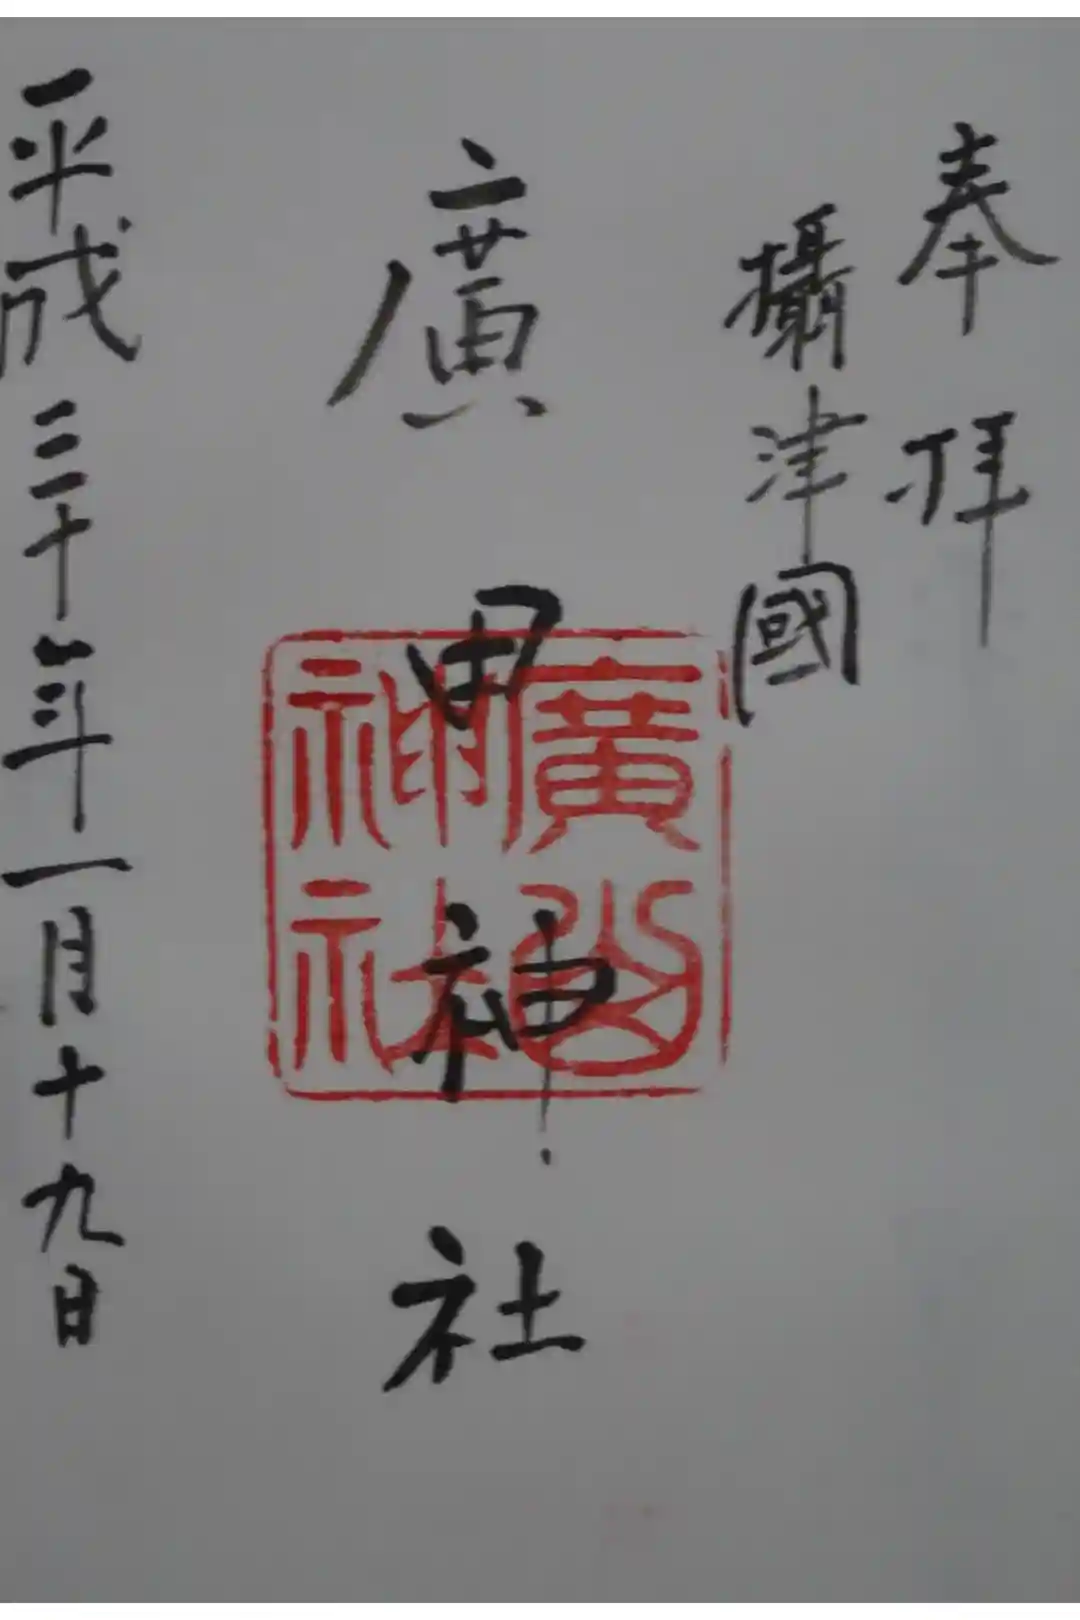 奉拝
攝津國
廣 神社
平成三十年一月十九日
廣 神社